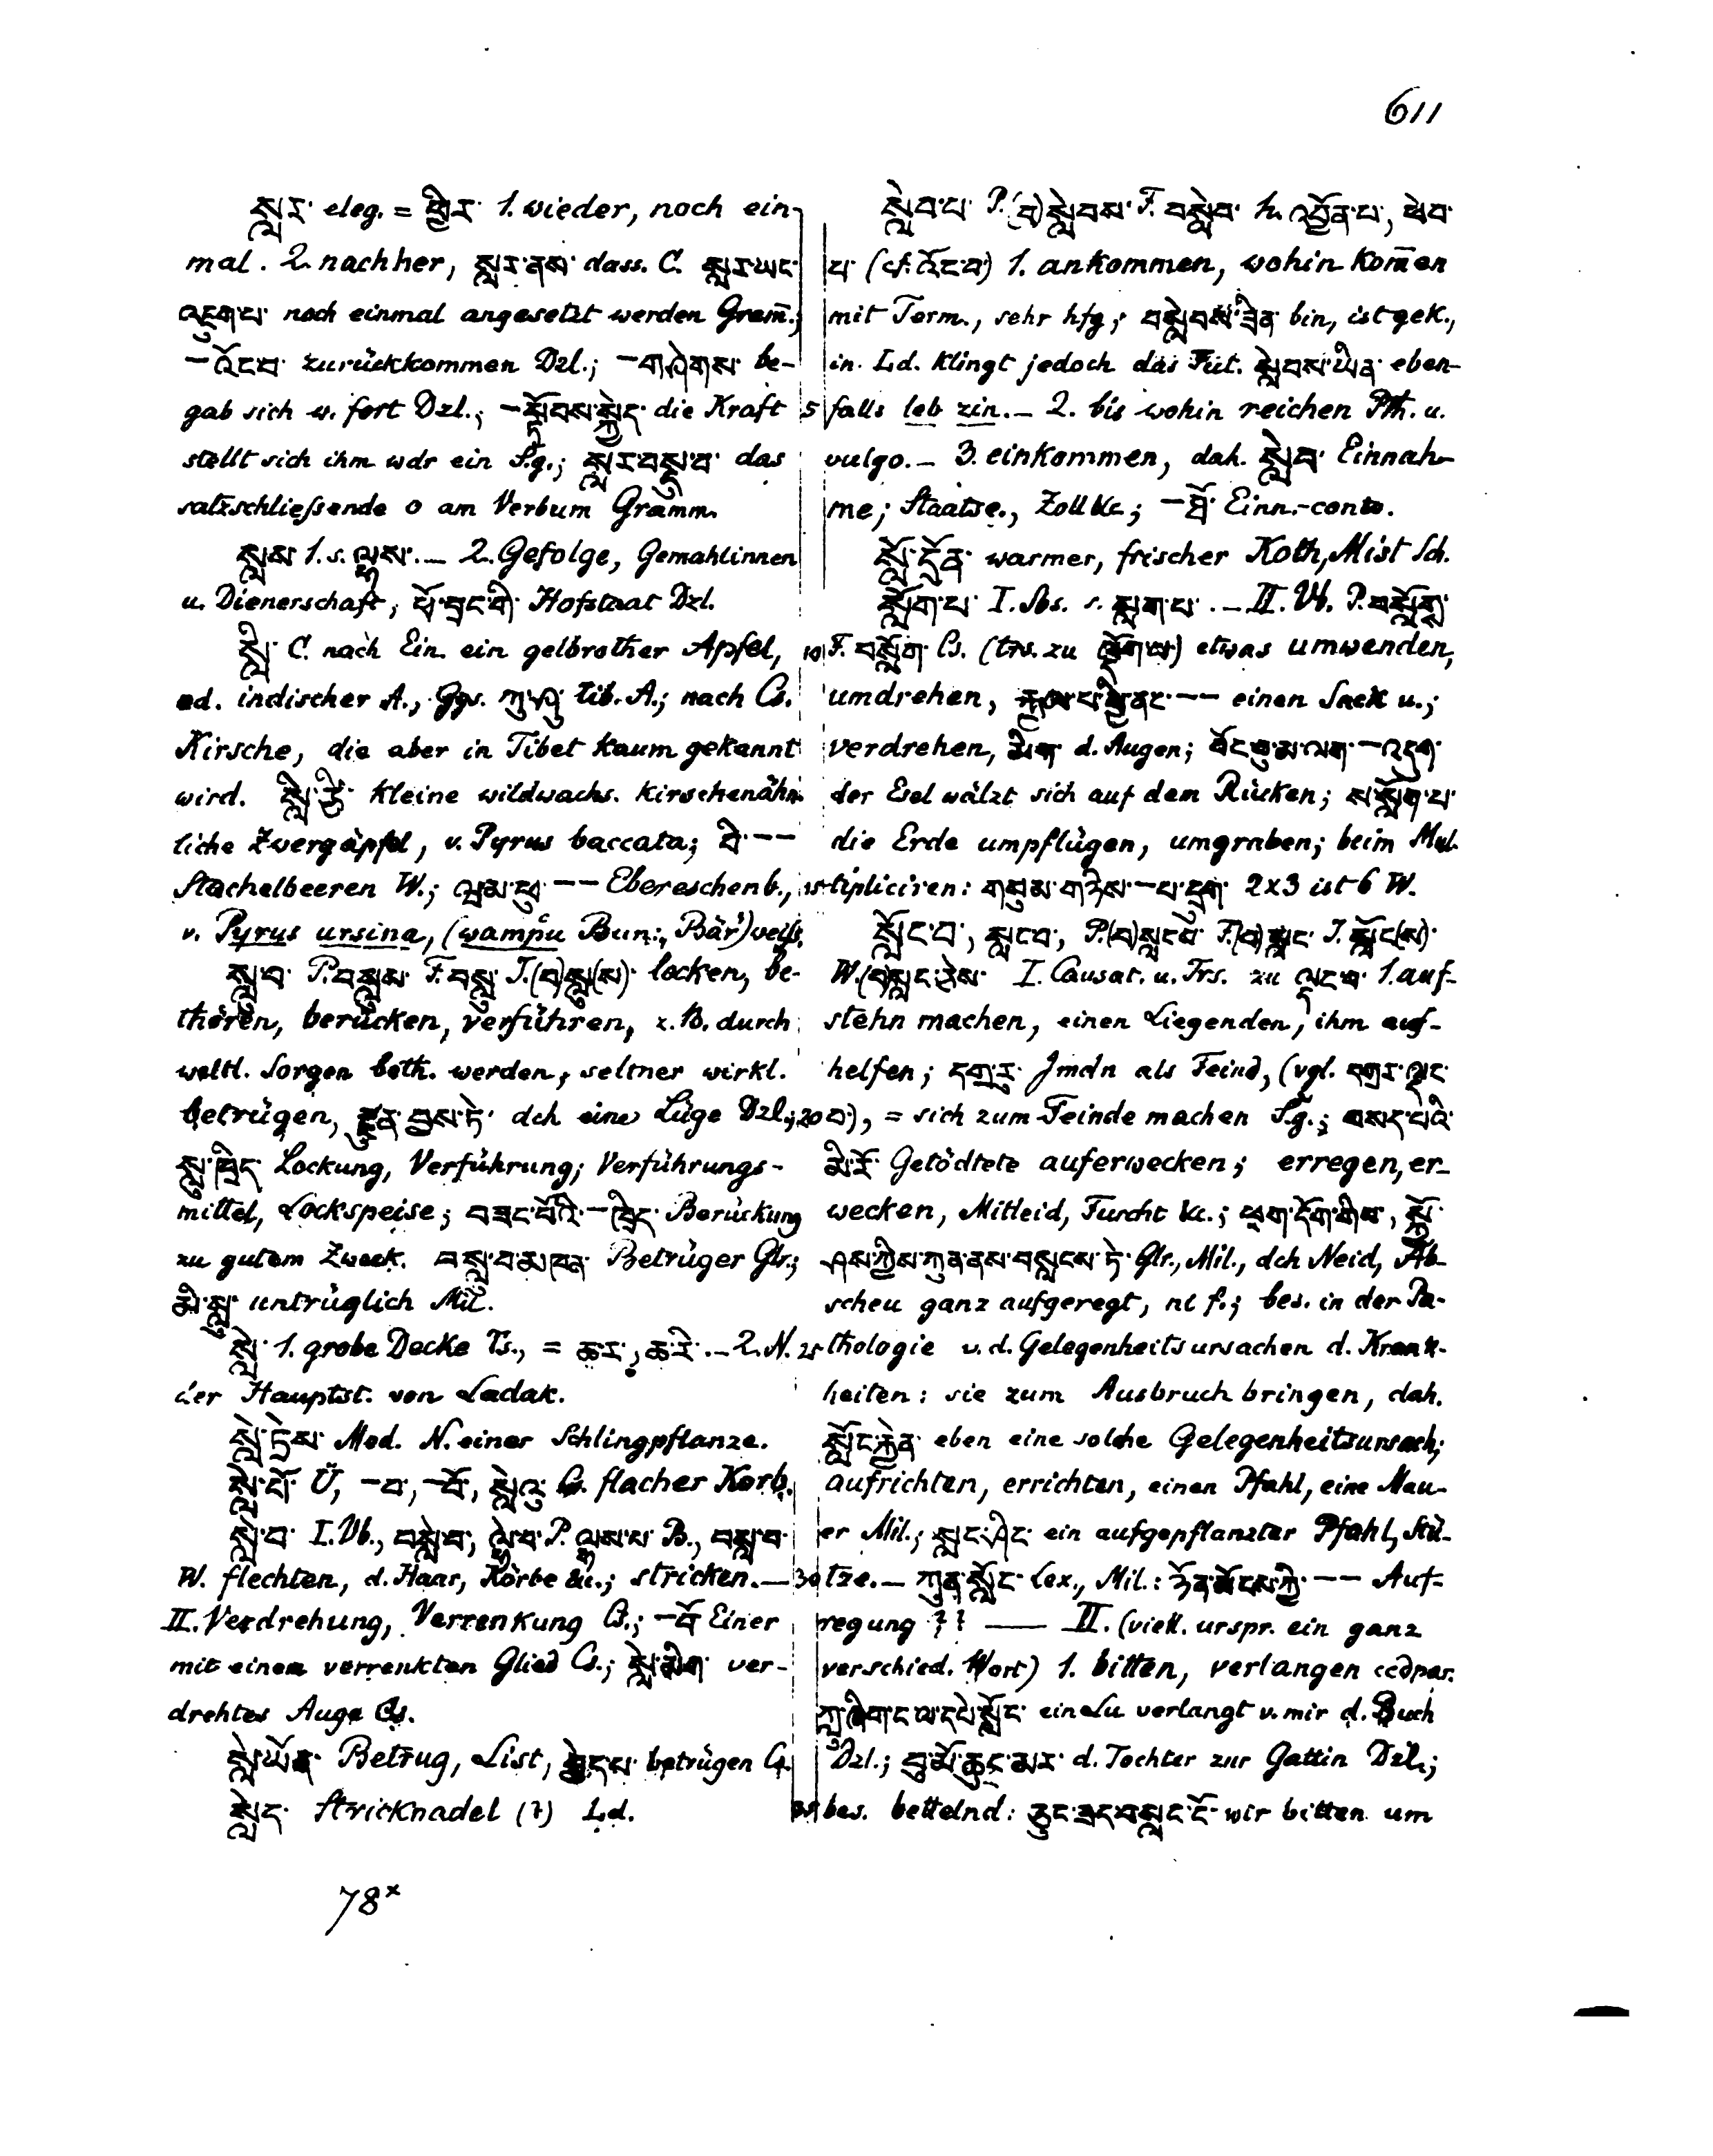 611
སླར་ eleg. = ཕྱིར་ 1. wieder, noch ein-
mal. 2. nachher, སླར་ནས་ dass. C. སླར་ཡང་
འཇུག་པ་ noch einmal angesetzt werden Gram̄.;
— འོང་བ་ zurückkommen Dzl.; — གཤེགས་ be-
gab sich w. fort Dzl.; — སྟོབས་སྐྱེད་ die Kraft
stellt sich ihm wdr ein S.g.; སླར་བསྡུ་བ་ das
satzschließende o am Verbum Gramm.
སླས 1. s. ལྷས་. — 2. Gefolge, Gemahlinnen
u. Dienerschaft, ཕོ་བྲང་གི་ Hofstaat Dzl.
སླི་ C. nach Ein. ein gelbrother Apfel,
od. indischer A., Ggs. ཀུ་ཤུ་ tib. A.; nach Cs.
Kirsche, die aber in Tibet kaum gekannt
wird. སླི་ཙི་ kleine wildwachs. kirschenähn-
liche Zwergäpfel, v. Pyrus baccata; — —
Stachelbeeren W.; — — Ebereschenb.,
v. Pyrus ursina, (wampu Bun., Bär)
སླུ་བ་ P. བསླུས་ F. བསླུ་ J. (བ)སླུ(ས)་ locken, be-
thören, berücken, verführen, z.B. durch
weltl. Sorgen beth. werden, seltner wirkl.
betrügen, རྫུན་བྱས་ཏེ་ dch eine Lüge Dzl.;
སླུ་ཁྲིད་ Lockung, Verführung; Verführungs-
mittel, Lockspeise; བཟང་པོའི་ — ཁྲིད་ Berückung
zu gutem Zweck. བསླུ་བ་མཁན་ Betrüger Glr.;
མི་སླུ་ untrüglich Mil.
སླེ་ 1. grobe Decke Ts., = ཆ་ར་, ཆ་རི་. — 2. N.
der Hauptst. von Ladak.
སླེ་ཏྲེས་ Med. N. einer Schlingpflanze.
སླེ་པོ་ Ü, — བ་, — བོ་, སླེའུ་ Cs. flacher Korb.
སླེ་བ་ I. Vb., བསླེ་བ་, ལྷེ་བ་ P. ལྷས་པ་ B., བསླ་བ་
W. flechten, d. Haar, Körbe &c.; stricken. —
II. Verdrehung, Verrenkung Cs.; — བོ་ Einer
mit einem verrenkten Glied Cs.; སླེ་མིག་ ver-
drehtes Auge Cs.
སླེ་ཡོན་ Betrug, List, བྱེད་པ་ betrügen Cs.
སླེད་ Stricknadel (?) Ld.
78ˣ
སླེབ་པ་ P. (བ)སླེབས་ F. བསླེབ་ h. འབྱོན་པ་, ཕེབ་
པ་ (cf. འོང་བ་) 1. ankommen, wohin kom̄en
mit Term., sehr hfg; བསླེབས་ཟིན་ bin, ist gek.,
in Ld. klingt jedoch das Fut. སླེབས་ཡིན་ eben-
5 falls leb zin. — 2. bis wohin reichen Pth. u.
vulgo. — 3. einkommen, dah. སླེབ་ Einnah-
me; Staatse., Zoll &c.; — ཐོ་ Einn.-conto.
སློ་དྲོན་ warmer, frischer Koth, Mist Sch.
སློག་པ་ I. Sbs. s. སླག་པ་. — II. Vb. P. བསློགས་
10 F. བསློག་ Cs. (trs. zu ལྡོག་པ་) etwas umwenden,
umdrehen, — — einen Sack u.;
verdrehen, མིག་ d. Augen; བོང་བུ་མ་ལག་ — འདུག་
der Esel wälzt sich auf dem Rücken; ས་སློག་པ་
die Erde umpflügen, umgraben; beim Mul-
15 tipliciren: གསུམ་གཉིས་ — པ་དྲུག་ 2x3 ist 6 W.
སློང་བ་, སླང་བ་, P. (བ)སླངས་ F. (བ)སླང་ J. སློང(ས)་
W. (བ)སླང་ཅེས་ I. Causat. u. Trs. zu ལང་བ་ 1. auf-
stehn machen, einen Liegenden, ihm auf-
helfen; དགྲ་རུ་ Jmdn als Feind, (vgl. དགྲར་ལྡང་
20 བ་), = sich zum Feinde machen S.g.; བསད་པའི་
མི་རོ་ Getödtete auferwecken; erregen, er-
wecken, Mitleid, Furcht &c.; ཕྲག་དོག་གིས་, སྐྱོ་
ཤས་ཀྱིས་ཀུན་ནས་བསླངས་ཏེ་ Glr., Mil., dch Neid, Ab-
scheu ganz aufgeregt, nl f.; bes. in der Pa-
25 thologie v. d. Gelegenheitsursachen d. Krank-
heiten: sie zum Ausbruch bringen, dah.
སློང་རྐྱེན་ eben eine solche Gelegenheitsursach;
aufrichten, errichten, einen Pfahl, eine Mau-
er Mil.; སླང་ཤིང་ ein aufgepflanzter Pfahl, Stü-
30 tze. — ཀུན་སློང་ Lex., Mil.: ཉོན་མོངས་ཀྱི་ — — Auf-
regung ?? — II. (viell. urspr. ein ganz
verschied. Wort) 1. bitten, verlangen ccdpar.
ཀླུ་ཞིག་ང་ལ་དཔེ་སློང་ ein Lu verlangt v. mir d. Buch
Dzl.; བུ་མོ་ཆུང་མར་ d. Tochter zur Gattin Dzl.;
35 bes. bettelnd: ཅུང་ཟད་བསླང་ངོ་ wir bitten um